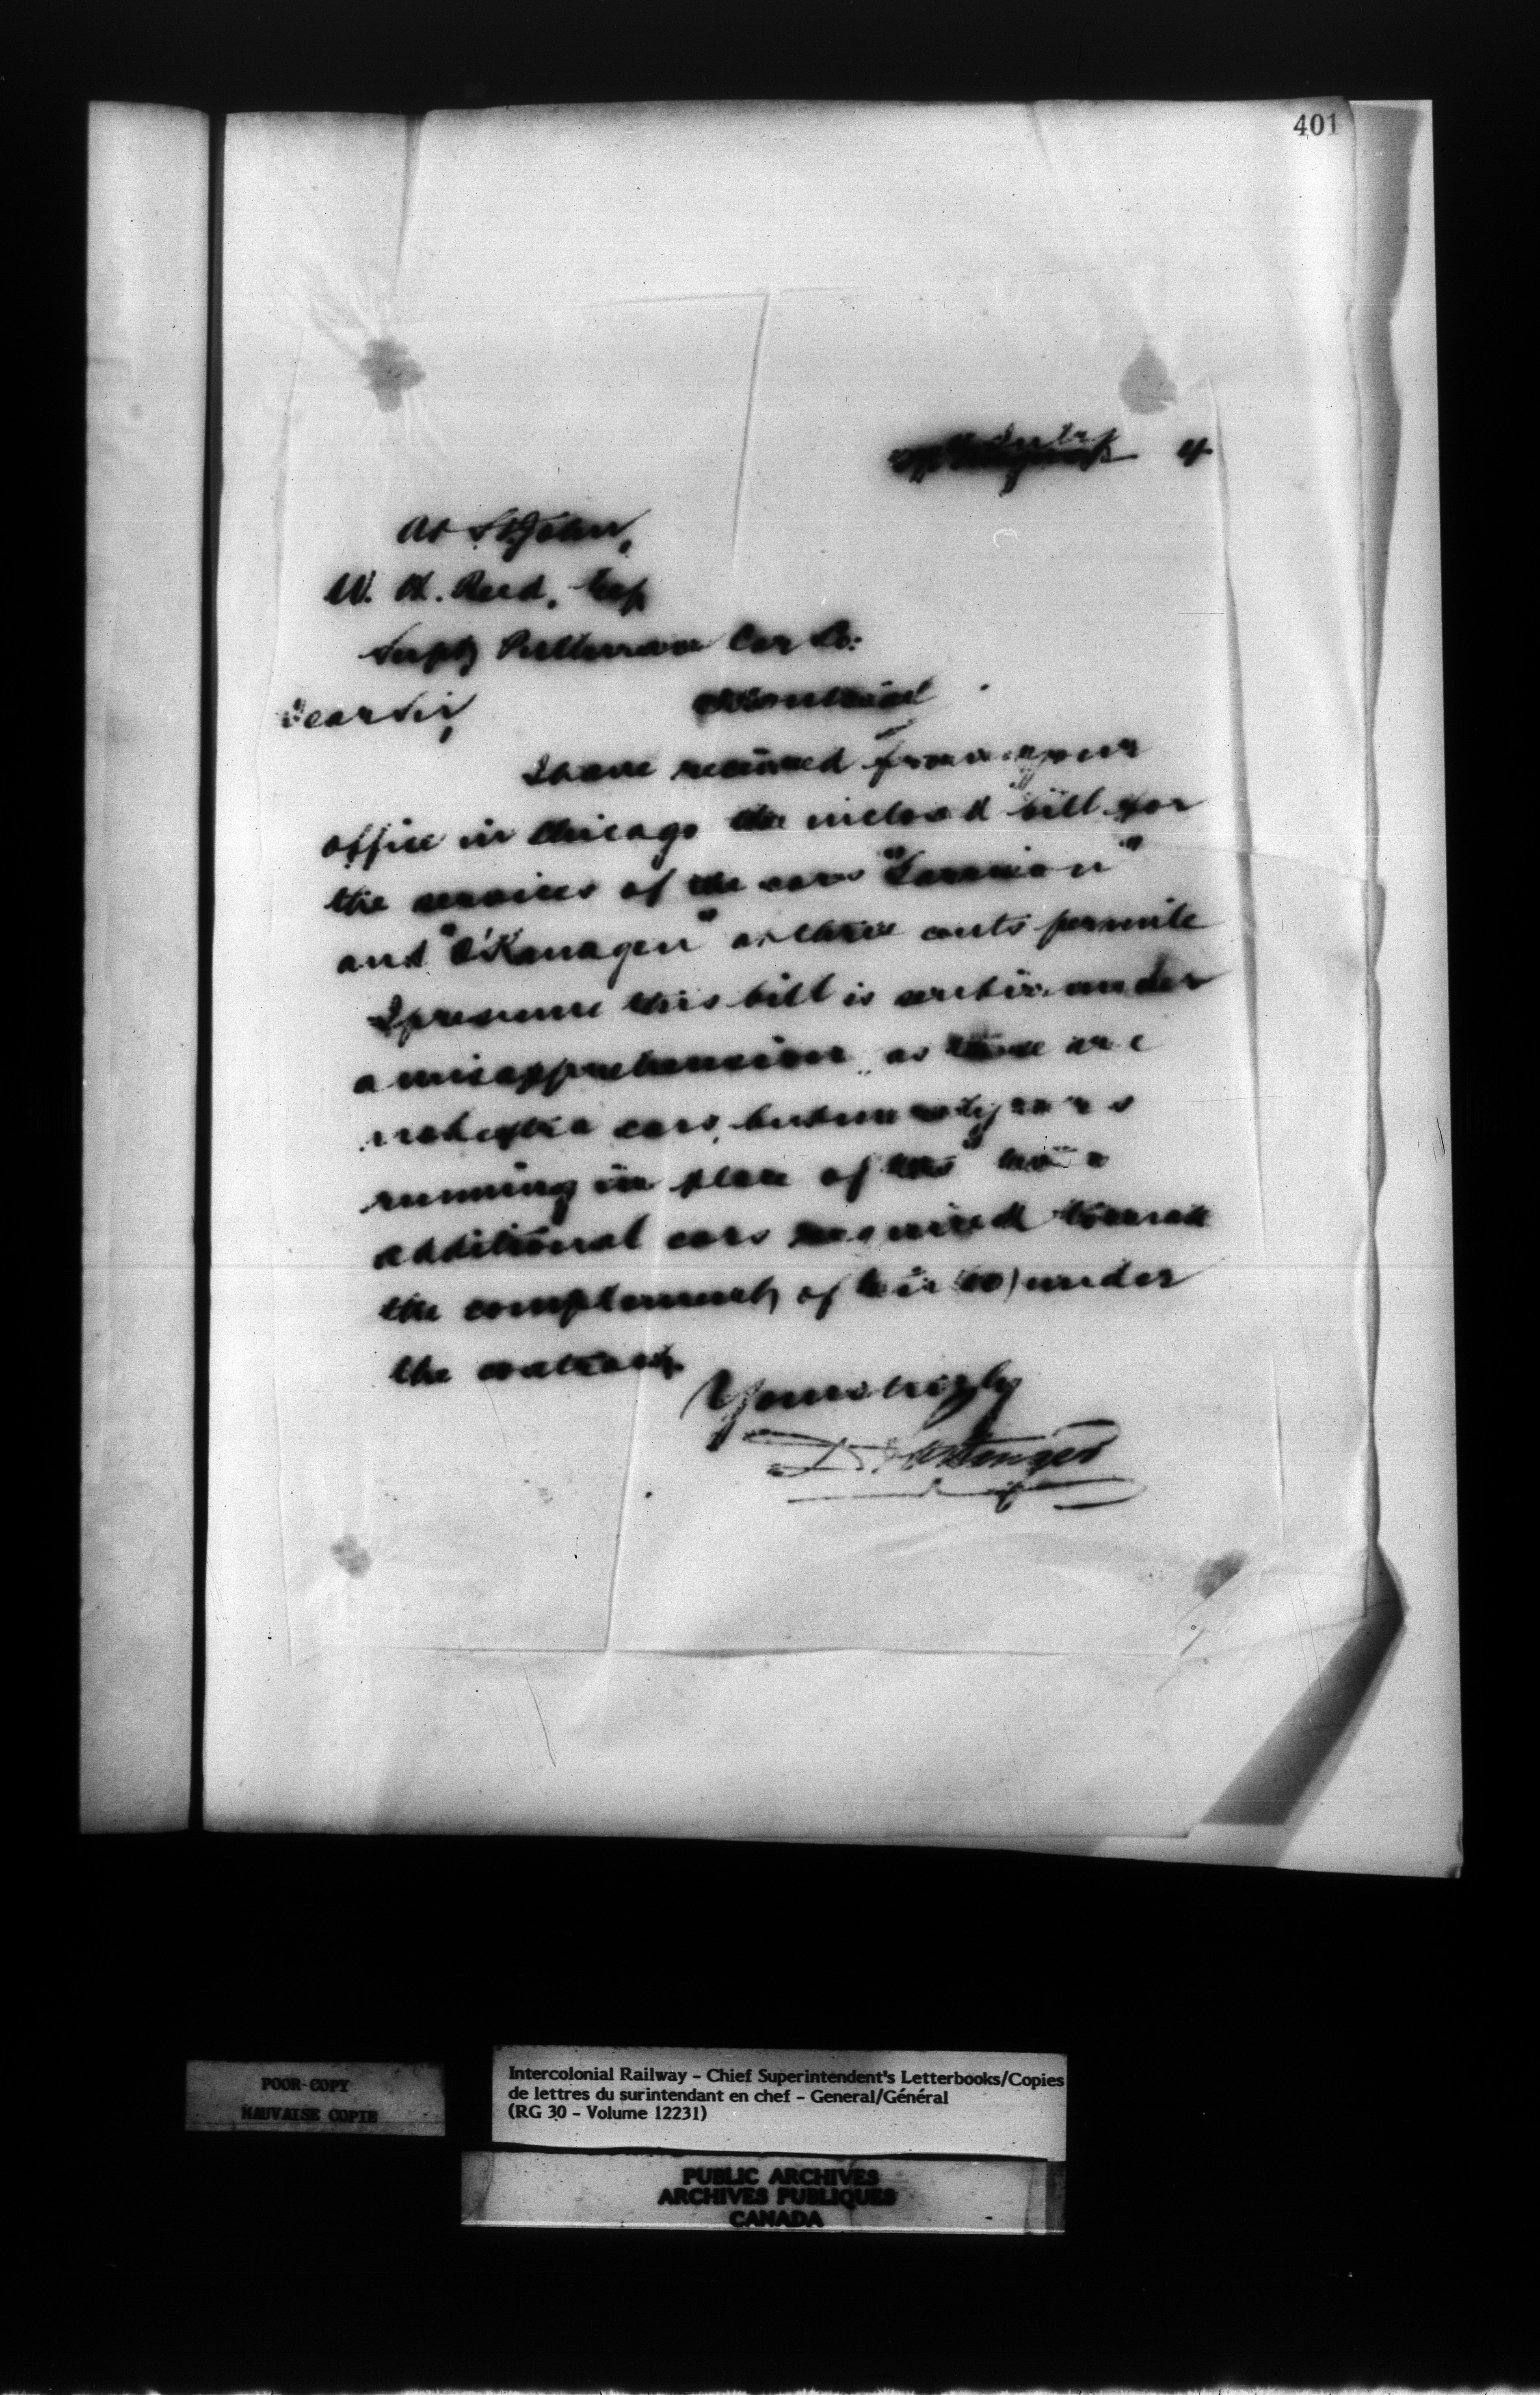 401
At St John,
W. H. Reed, Esq
Supt Pullman Car Co:
Montreal
Dear Sir,
I have received from your
office in Chicago the inclosed bill for
the services of the cars "
and "O'Kanagen" at three cents per mile
I presume this bill is under
a misapprehension as these are
not extra cars, but merely cars
running in place of the two
additional cars required to make
the complement of ten (10) under
the contract.
Yours truly
D Pottinger
POOR COPY
MAUVAISE COPIE
Intercolonial Railway - Chief Superintendent's Letterbooks/Copies
de lettres du surintendant en chef - General/Général
(RG 30 - Volume 12231)
PUBLIC ARCHIVES
ARCHIVES PUBLIQUES
CANADA